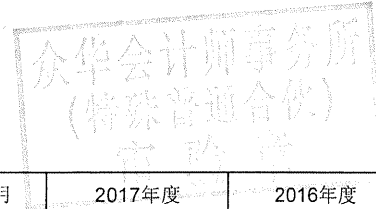 众华会计师事务所
(特殊普通合伙)
月 2017年度 2016年度